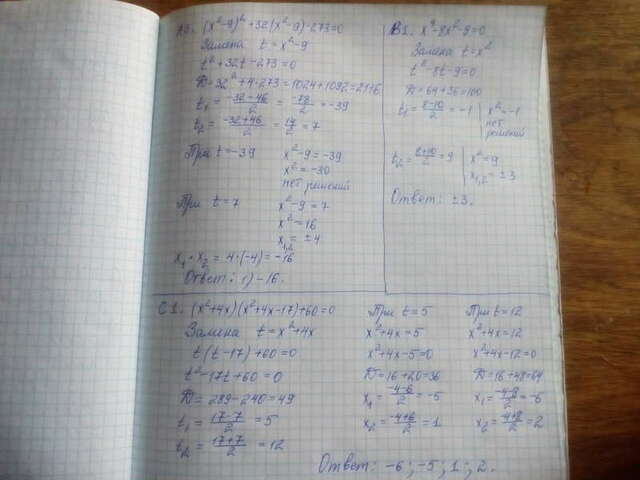 A3. (x²-9)²+32(x²-9)-273=0
Замена t=x²-9
t²+32t-273=0
D=32²+4·273=1024+1092=2116
t₁=(-32-46)/2=-78/2=-39
t₂=(-32+46)/2=14/2=7
При t=-39 x²-9=-39
x²=-30
нет решений
При t=7 x²-9=7
x²=16
x₁,₂=±4
x₁·x₂=4·(-4)=-16
Ответ: 1) -16.
B1. x⁴-8x²-9=0
Замена t=x²
t²-8t-9=0
D=64+36=100
t₁=(8-10)/2=-1 x²=-1
нет
решений
t₂=(8+10)/2=9 x²=9
x₁,₂=±3
Ответ: ±3.
C1. (x²+4x)(x²+4x-17)+60=0
Замена t=x²+4x
t(t-17)+60=0
t²-17t+60=0
D=289-240=49
t₁=(17-7)/2=5
t₂=(17+7)/2=12
При t=5
x²+4x=5
x²+4x-5=0
D=16+20=36
x₁=(-4-6)/2=-5
x₂=(-4+6)/2=1
При t=12
x²+4x=12
x²+4x-12=0
D=16+48=64
x₁=(-4-8)/2=-6
x₂=(-4+8)/2=2
Ответ: -6; -5; 1; 2.